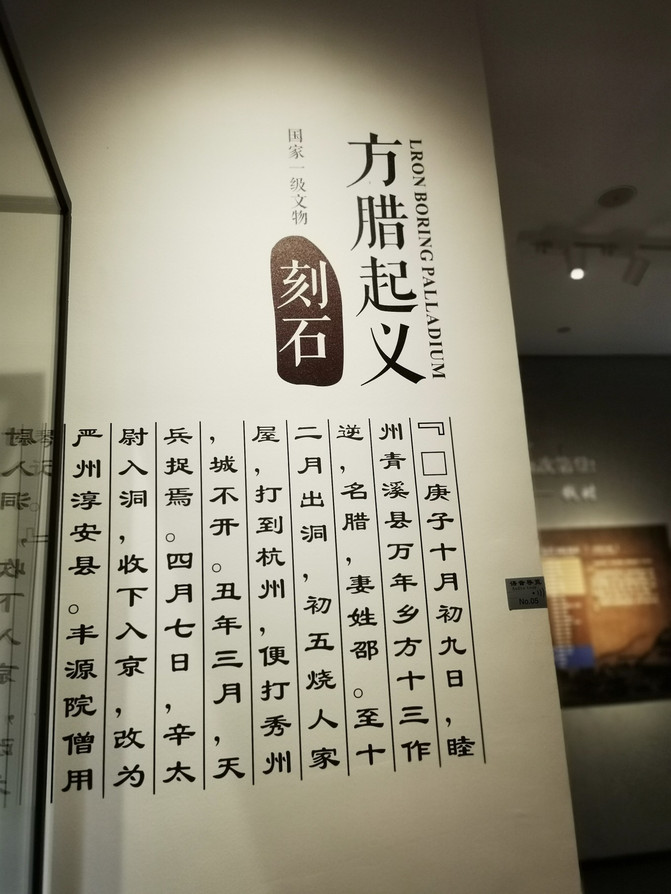 LRON BORING PALLADIUM
方腊起义
国家一级文物
刻石
『□庚子十月初九日，睦
州青溪县万年乡方十三作
逆，名腊，妻姓邵。至十
二月出洞，初五烧人家
屋，打到杭州，便打秀州
，城不开。丑年三月，天
兵捉焉。四月七日，辛太
尉入洞，收下入京，改为
严州淳安县。丰源院僧用
No.05